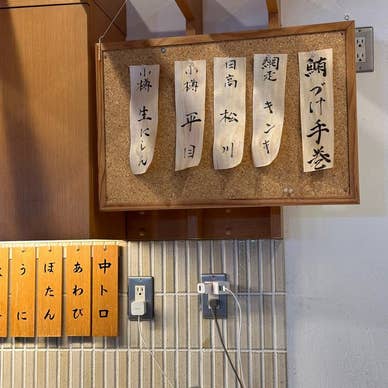 鮪づけ手巻
網走 キンキ
日高 松川
小樽 平目
小樽 生にしん
中トロ
あわび
ぼたん
うに